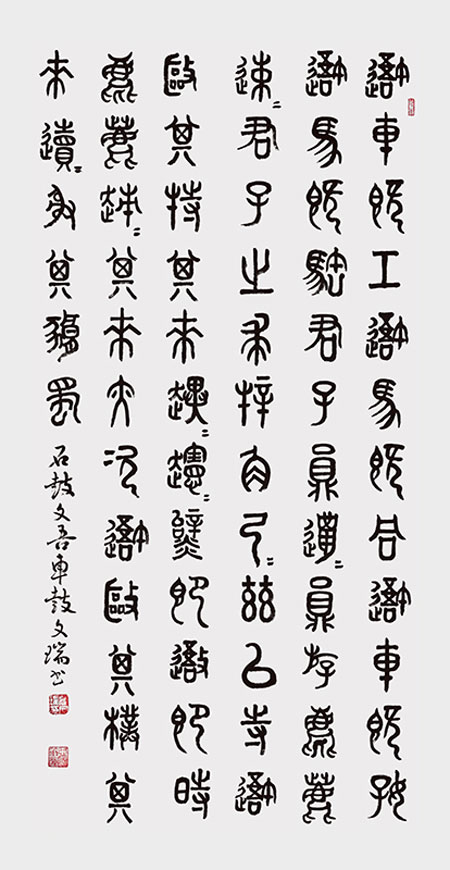 吾車既工吾馬既同吾車既好
吾馬既駓君子員邋=員斿麀鹿
速=君子之求梓角弓=茲以寺吾
敺其特其來趩=即吾即時
麀鹿趚=其來大次吾敺其樸其
來遺=射其豜蜀
石鼓文吾車鼓文瑞書